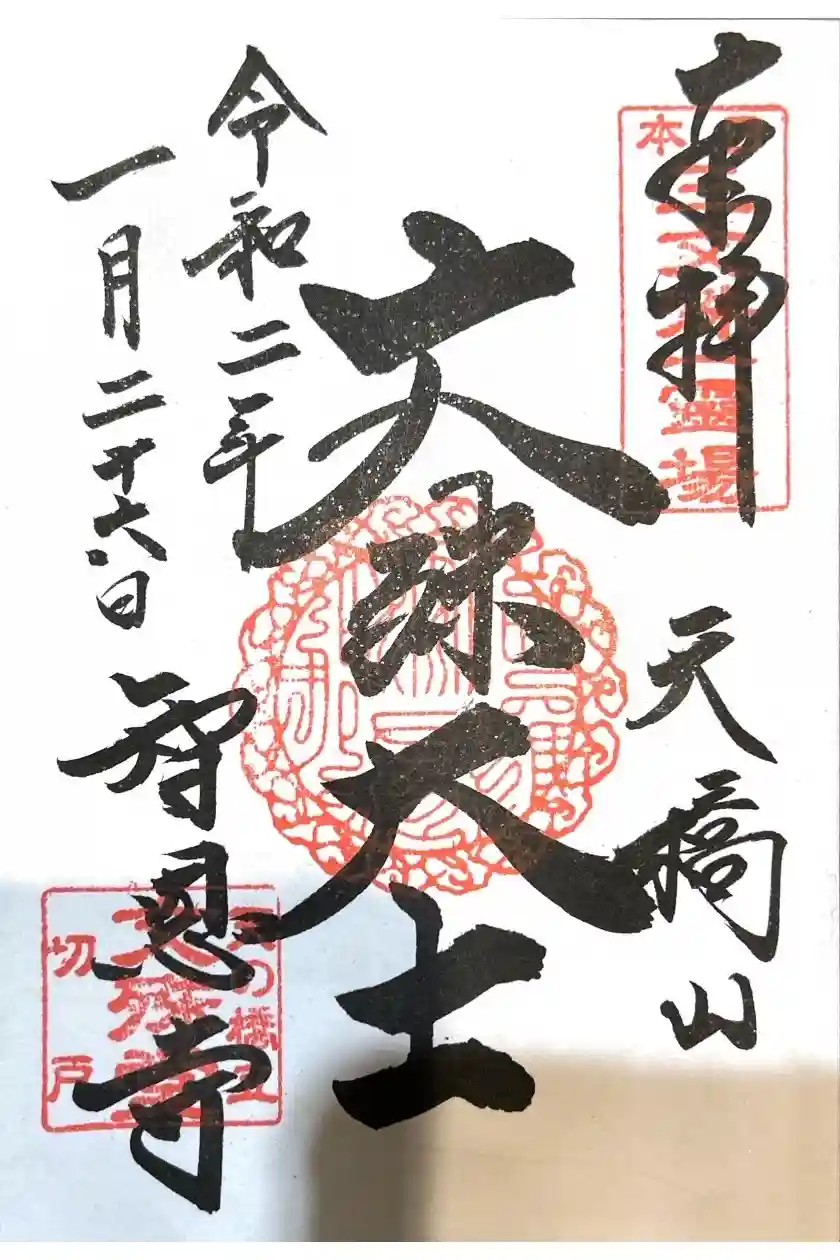 奉拝
天橋山
文殊大士
令和二年
一月二十六日
智恩寺
本
霊場
天の橋立
文殊堂
切戸